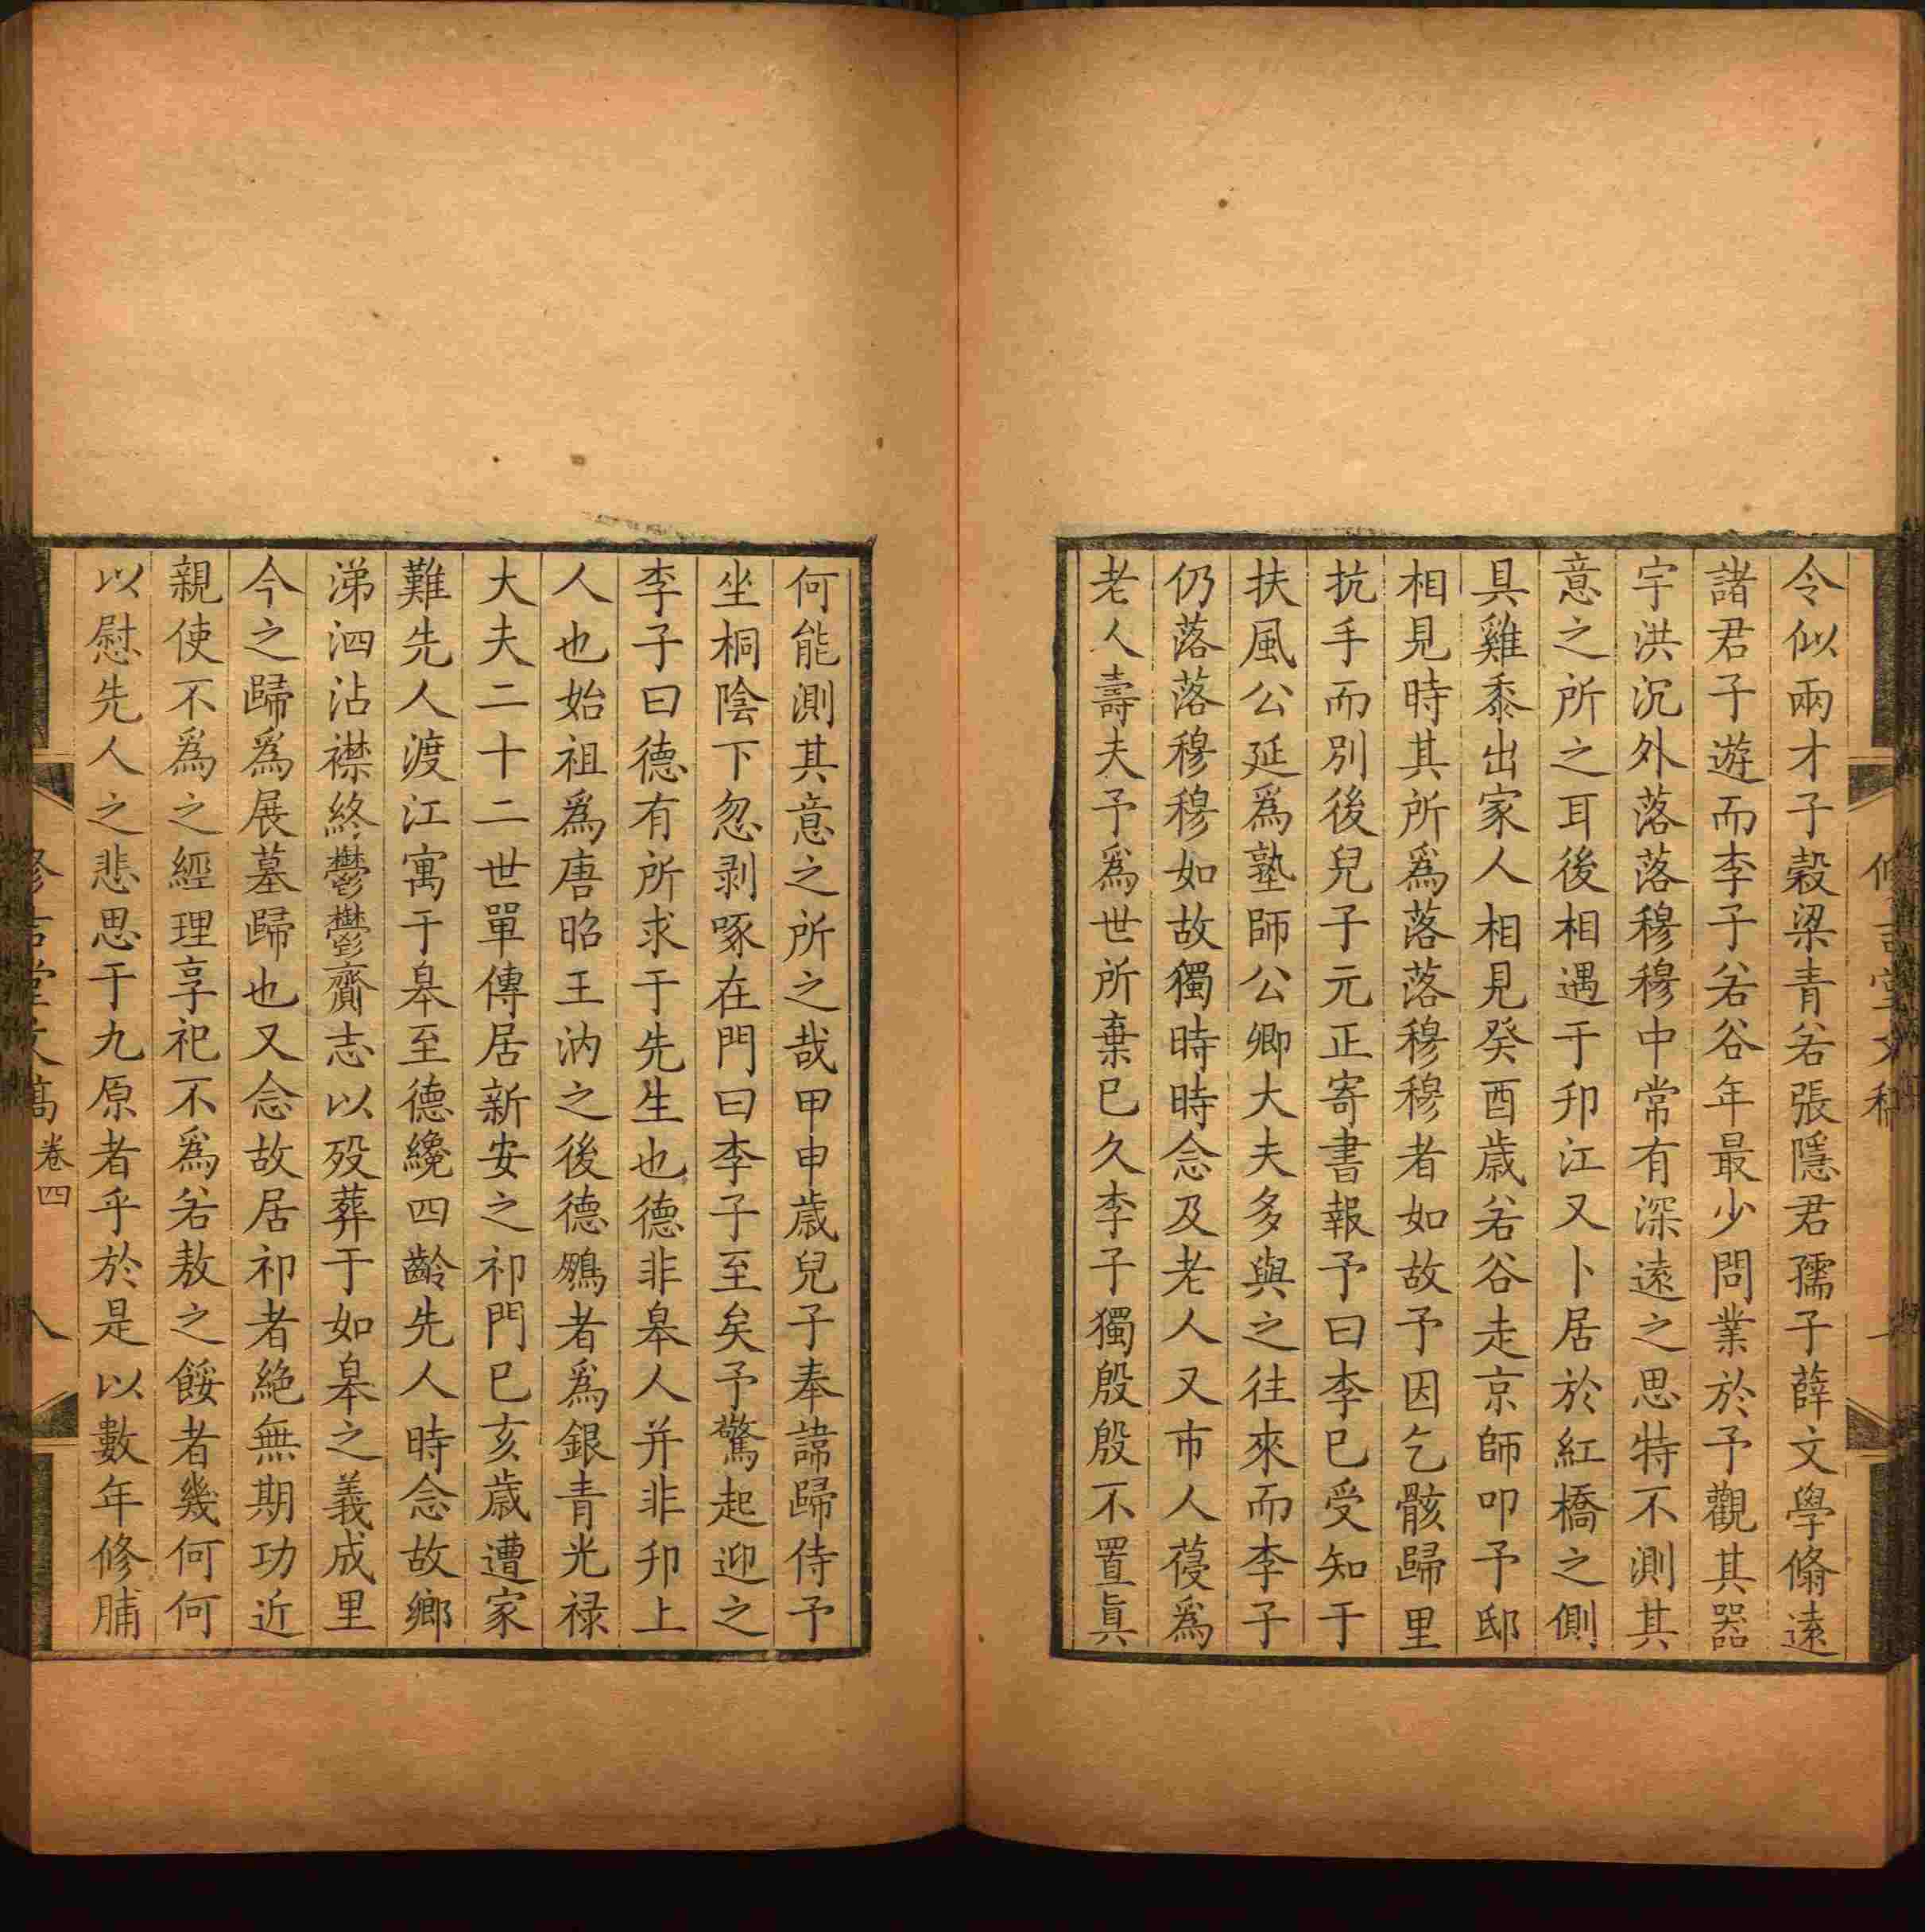 令似兩才子榖梁青若張隱君孺子薛文學翛遠
諸君子遊而李子若谷年最少問業於予觀其器
宇洪沉外落落穆穆中常有深遠之思特不測其
意之所之耳後相遇于卭江又卜居於紅橋之側
具雞黍出家人相見癸酉歲若谷走京師叩予邸
相見時其所爲落落穆穆者如故予因乞骸歸里
抗手而別後兒子元正寄書報予曰李已受知于
扶風公延爲塾師公卿大夫多與之往來而李子
仍落落穆穆如故獨時時念及老人又市人葠爲
老人壽夫予爲世所棄巳久李子獨殷殷不置眞
何能測其意之所之哉甲申歲兒子奉諱歸侍予
坐桐陰下忽剥啄在門曰李子至矣予驚起迎之
李子曰德有所求于先生也德非皋人并非卭上
人也始祖爲唐昭王汭之後德鵷者爲銀青光禄
大夫二十二世單傳居新安之祁門巳亥歲遭家
難先人渡江寓于皋至德纔四齡先人時念故鄉
涕泗沾襟終鬱鬱齎志以歿葬于如皋之義成里
今之歸爲展墓歸也又念故居祁者絶無期功近
親使不爲之經理享祀不爲若敖之餒者幾何何
以慰先人之悲思于九原者乎於是以數年修脯
堂文
卷四
八